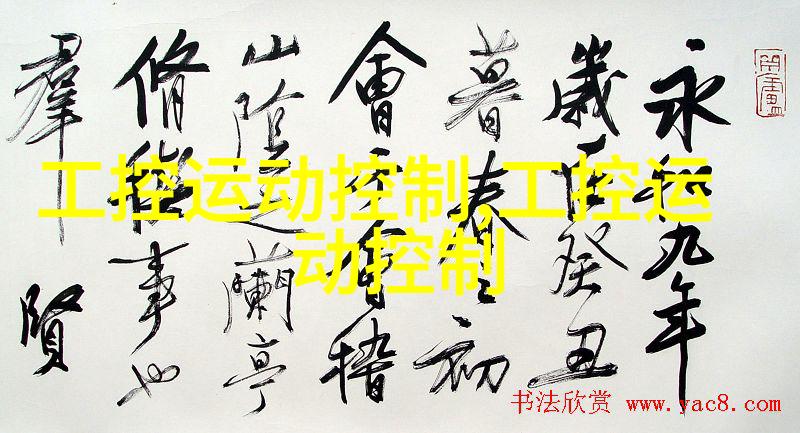 永和九年
歲在癸丑
暮春之初
會于會稽
山陰之蘭亭
脩禊事也
羣賢
工控运动控制,工控运
动控制
书法欣赏 www.yac8.com